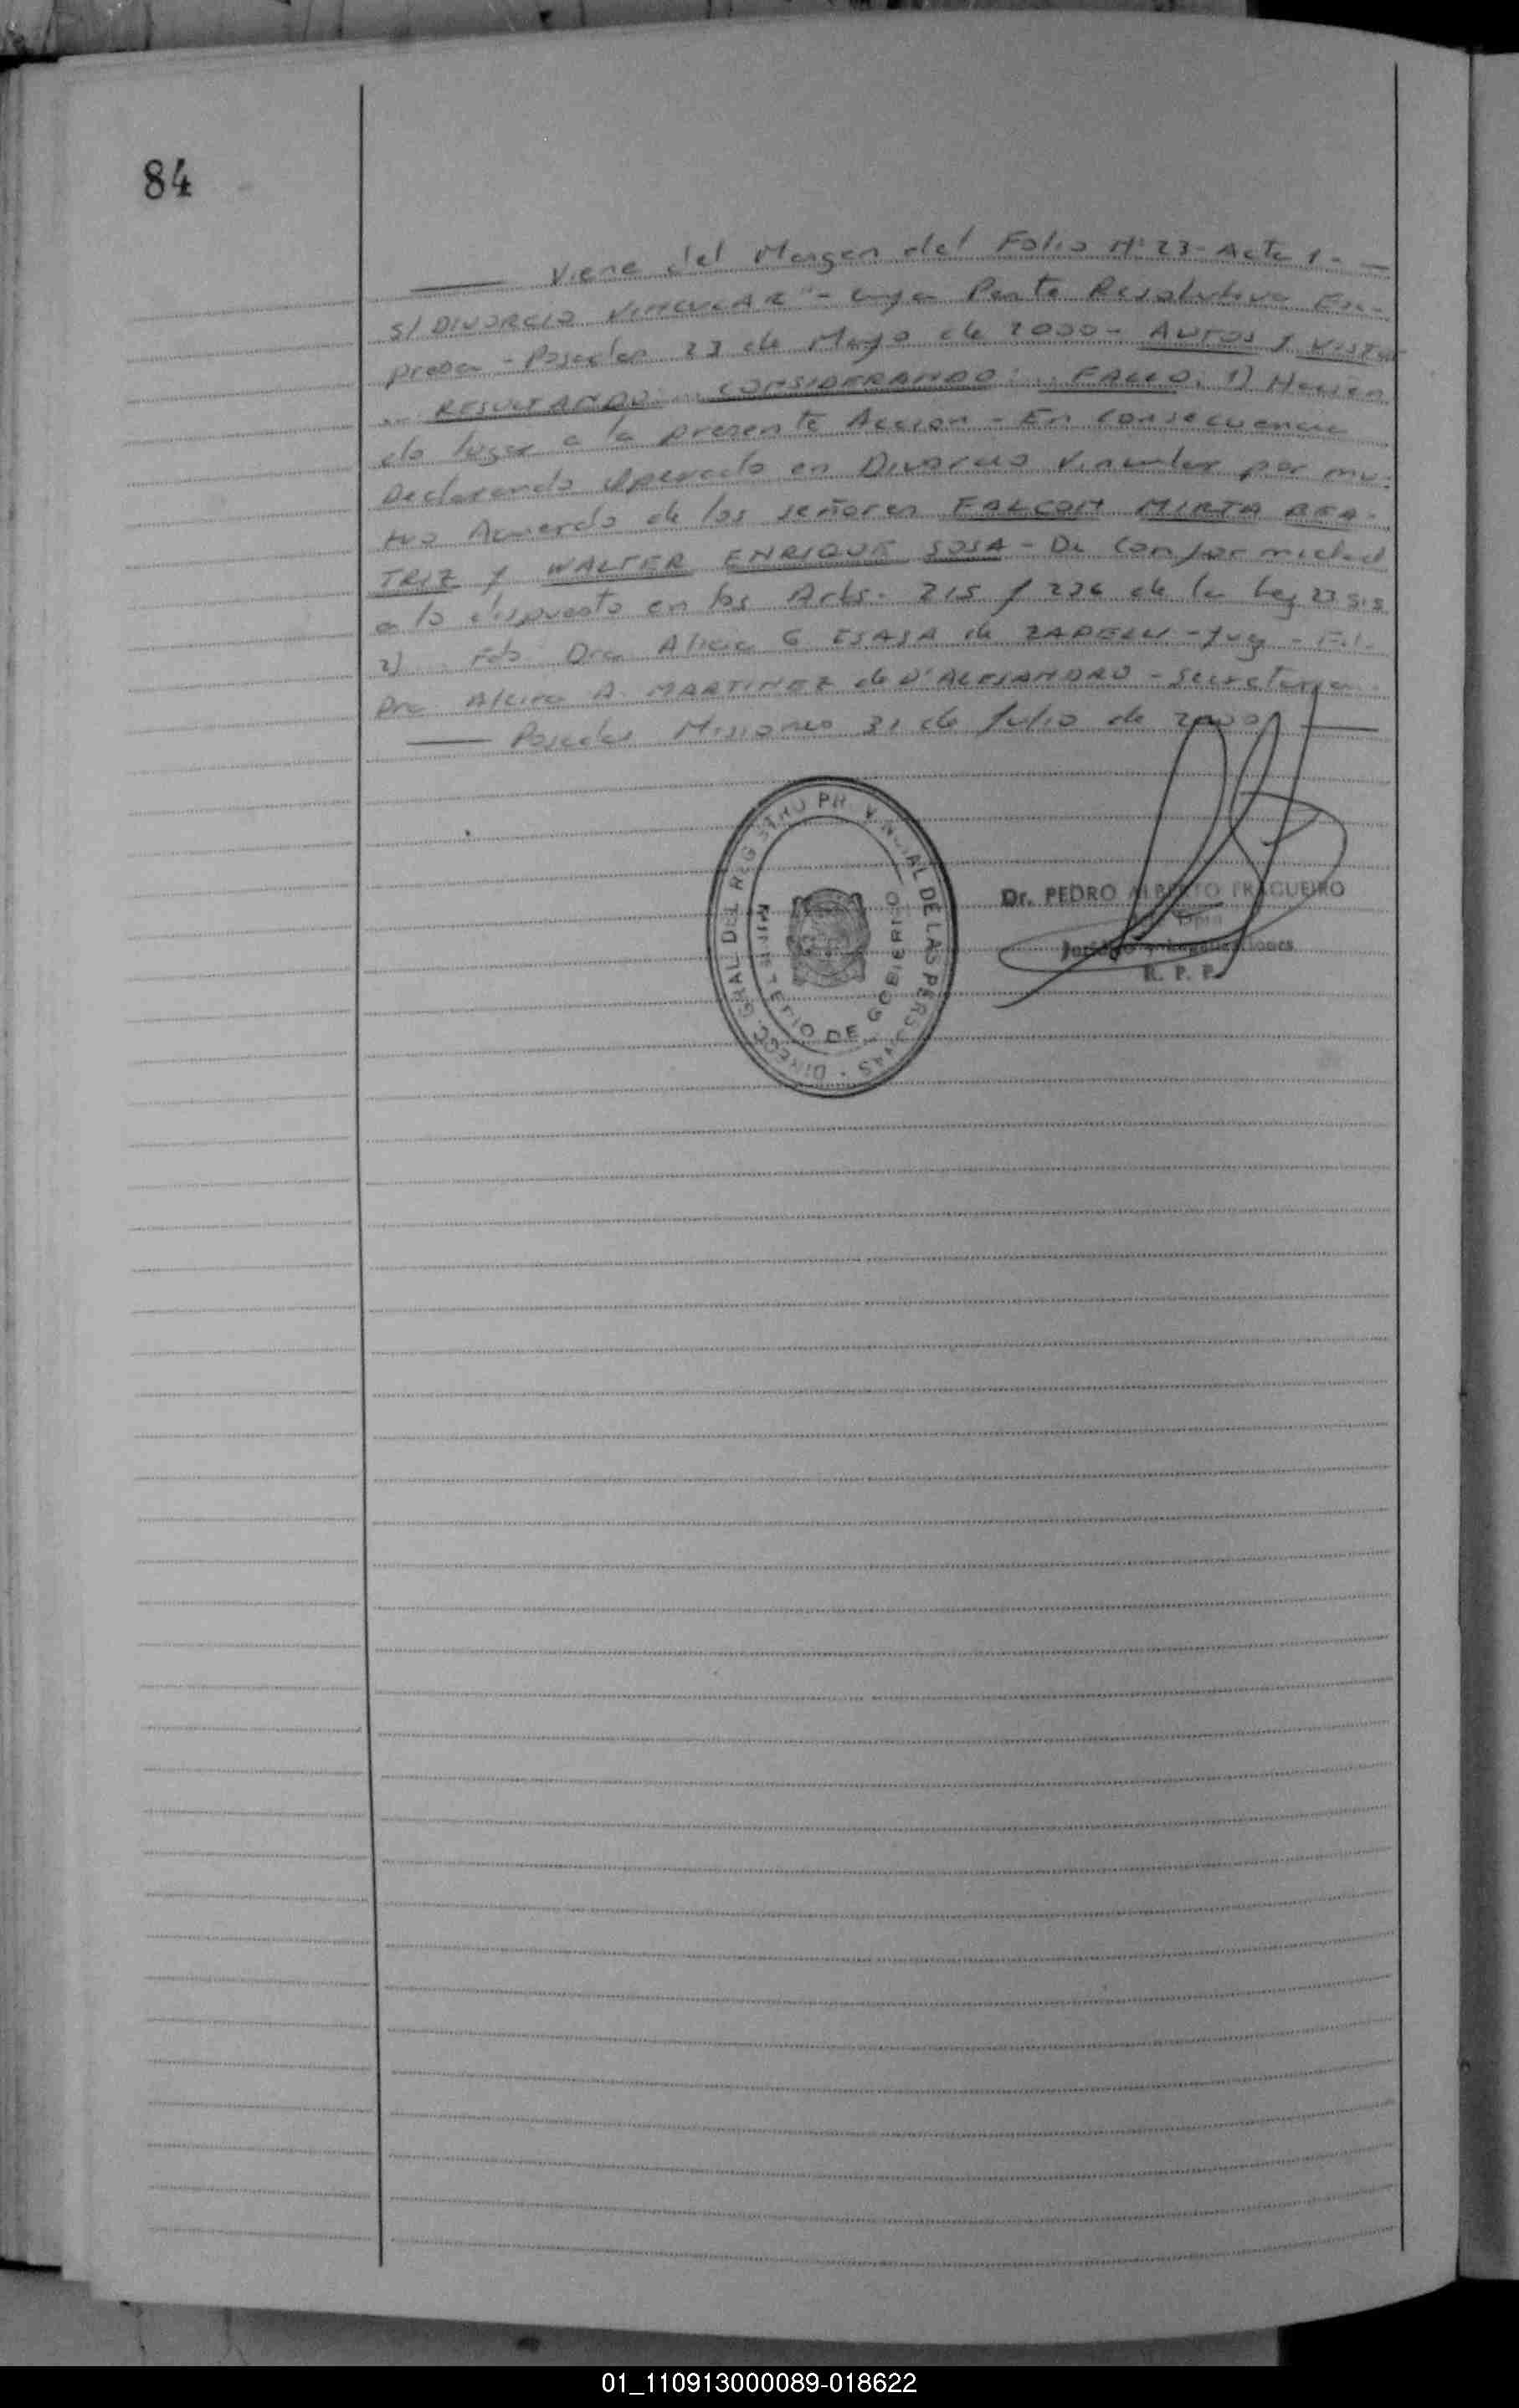 84
Viene del Margen del Folio Nº 23 - Acta 1 -
S/ DIVORCIO VINCULAR" - cuya Parte Resolutiva Ex-
presa - Posadas 23 de Mayo de 2000 - AUTOS Y VISTOS
... RESULTANDO: ... CONSIDERANDO: ... FALLO. 1) Hacien
do lugar a la presente Accion - En consecuencia
Declarando operado en Divorcio Vincular por mu-
tuo Acuerdo de los señores FALCON MIRTA BEA-
TRIZ y WALTER ENRIQUE SOSA - De conformidad
a lo dispuesto en los Arts. 215 y 236 de la Ley 23515
2) ... Fdo Dra Alicia G de - Juez - Fdo.
Dra A. MARTINEZ de D'ALEJANDRO - Secretaria.
Posadas Misiones 31 de Julio de 2000
DIRECC. GRAL DEL REGISTRO PROVINCIAL DE LAS PERSONAS
MINISTERIO DE GOBIERNO
Dr. PEDRO ALBERTO FRAGUEIRO
Dpto
Jurídico y Legalizaciones
R. P. P.
01_110913000089-018622